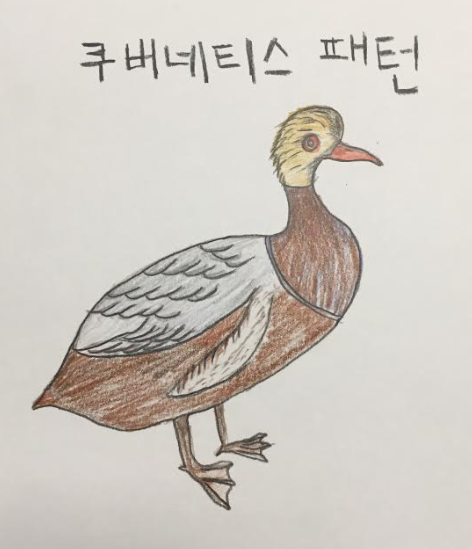 쿠버네티스 패턴